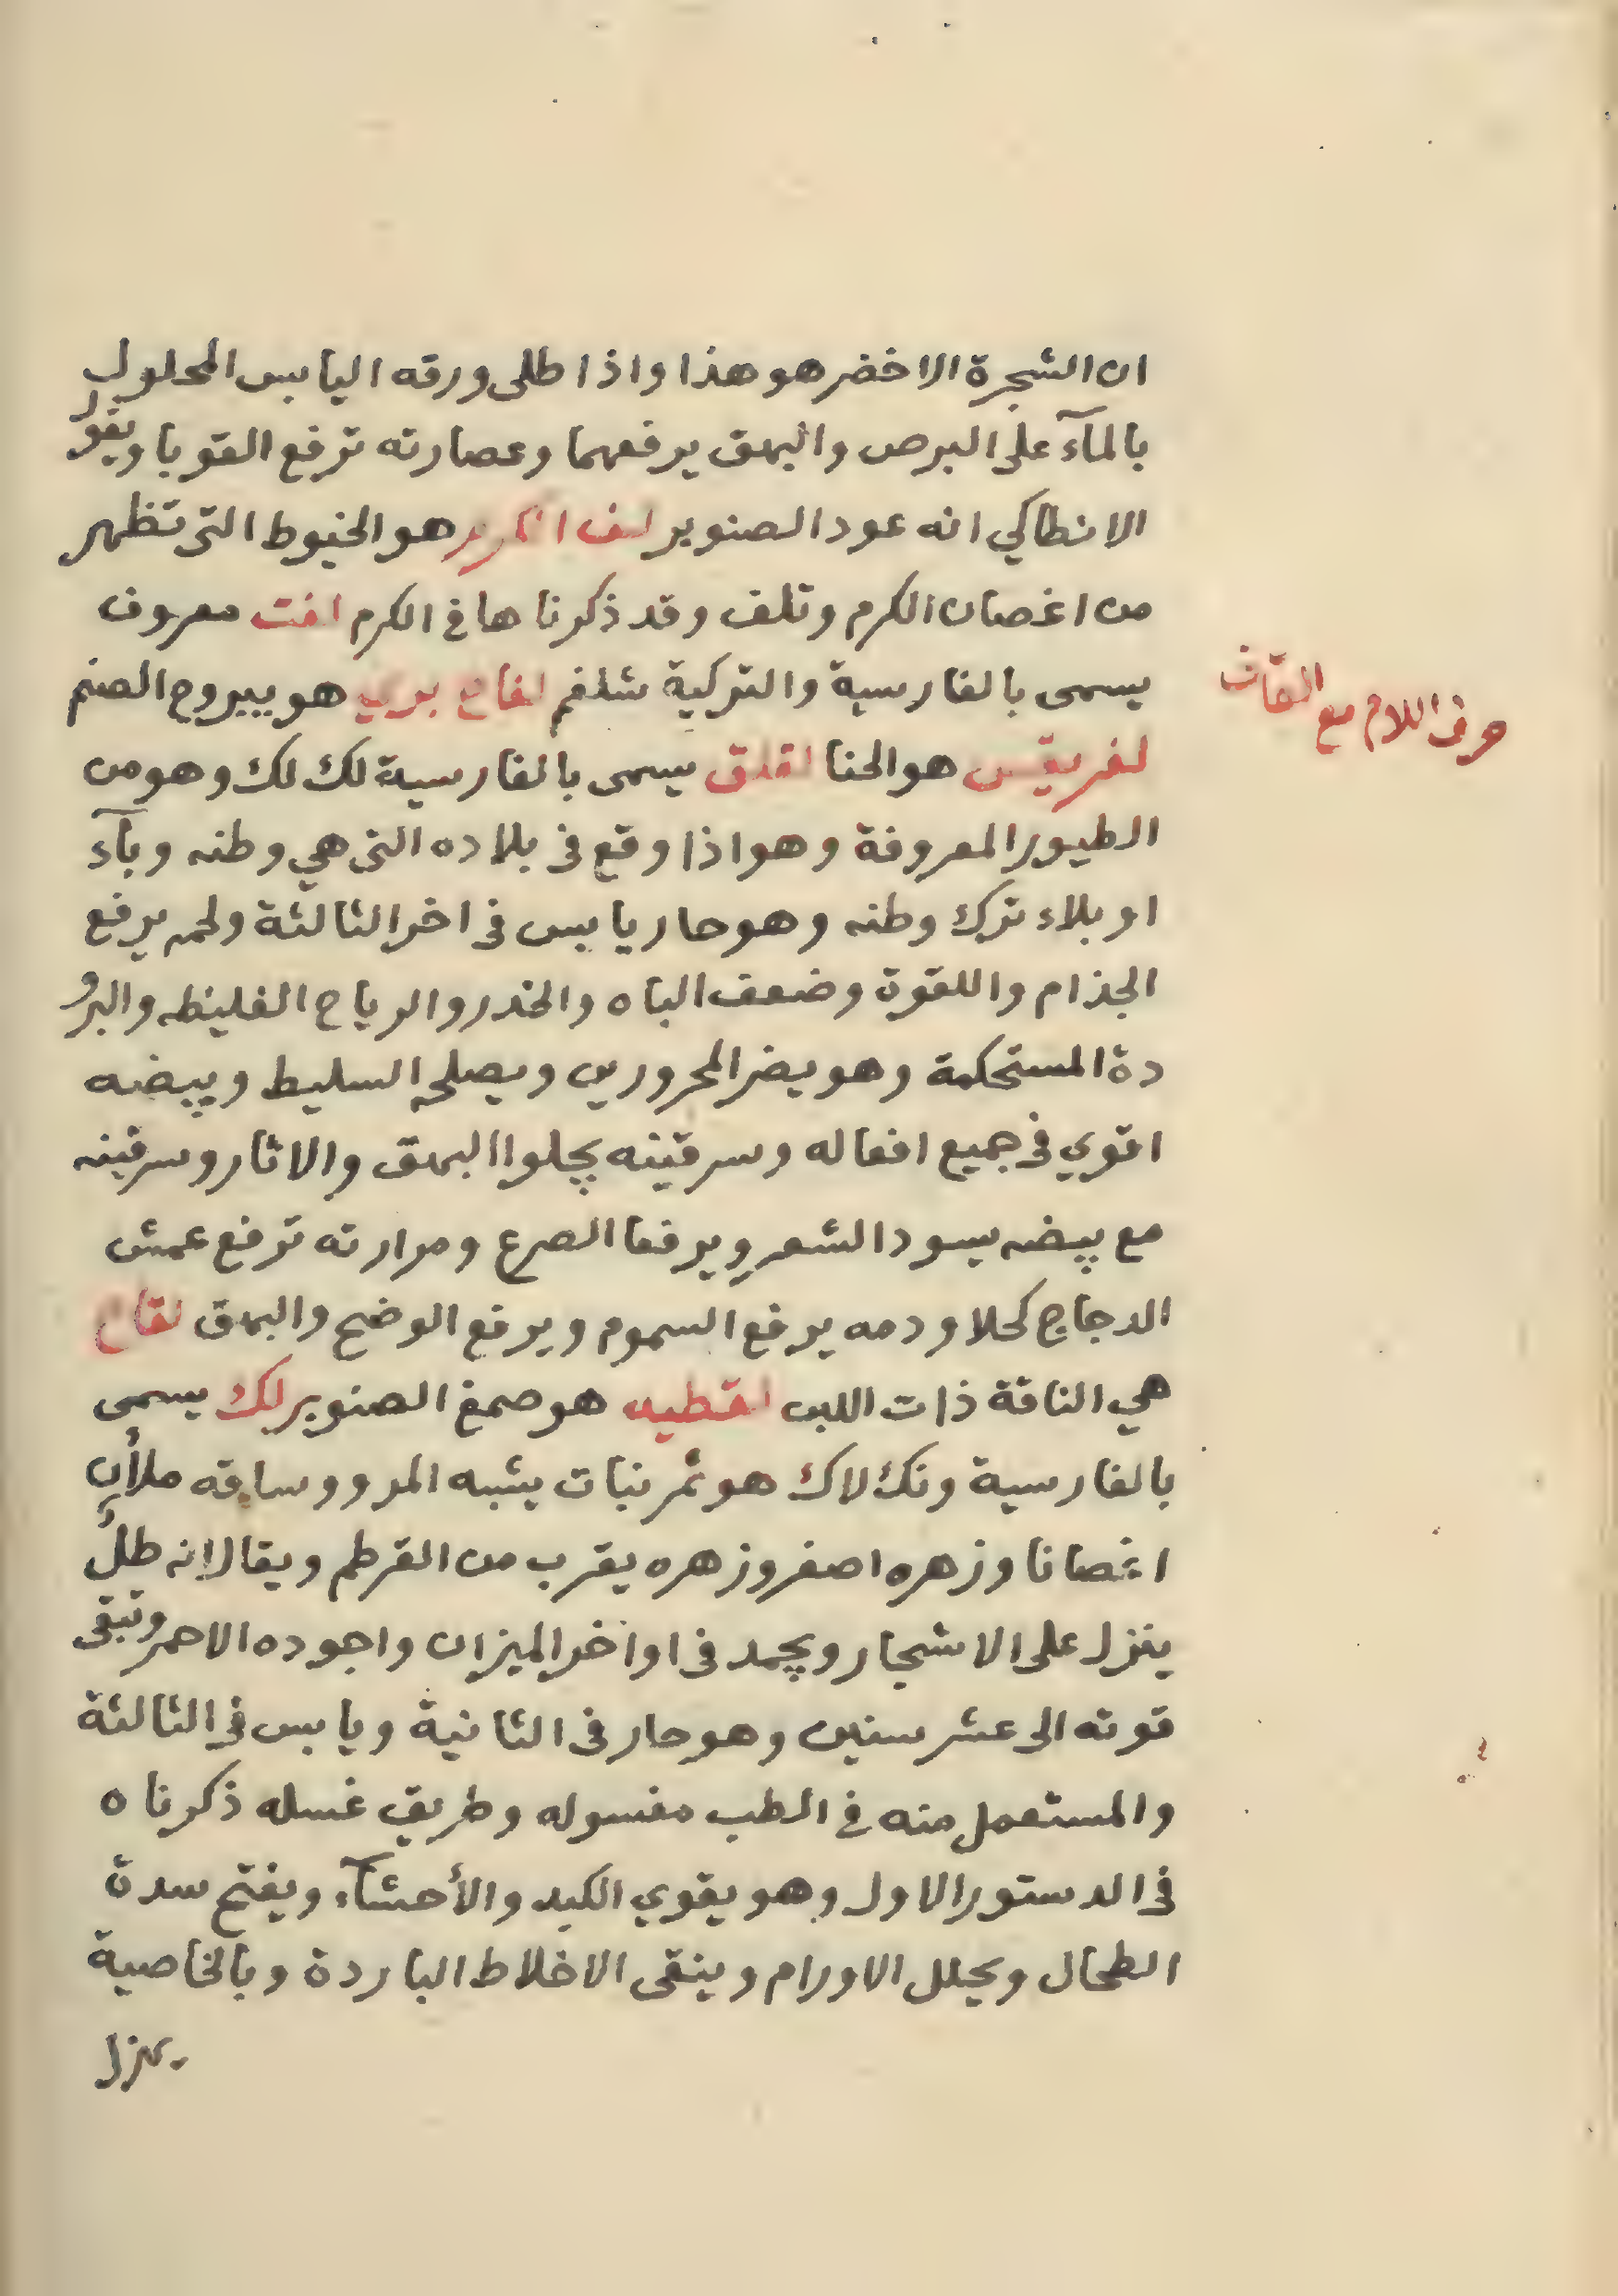 ان الشجرة الاخضر هو هذا واذا طلى ورقه اليابس المحلول
بالمآء على البرص والبهق يرفعهما وعصارته ترفع القوبا ويقول
الانطاكي انه عود الصنوبر لف الكرم هو الخيوط التى تظهر
من اغصان الكرم وتلف وقد ذكرناها فى الكرم لفت معروف
يسمى بالفارسية والتركية شلغم لفاح بري هو يبروح الصنم
حرف اللام مع القاف
لفريقس هو الحنا لقلق يسمى بالفارسية لك لك وهو من
الطيور المعروفة وهو اذا وقع فى بلاده التى هي وطنه وبآء
او بلاء ترك وطنه وهو حار يابس فى اخر الثالثة ولحمه يرفع
الجذام واللقوة وضعف الباه والخدر والرياح الغليظه والبرو
دة المستحكمة وهو يضر المحرورين ويصلحه السليط وبيضه
اقوي فى جميع افعاله وسرقينه يجلوا البهق والاثار وسرقينه
مع بيضه يسود الشعر ويرفعا الصرع ومرارته ترفع عمش
الدجاج كحلا ودمه يرفع السموم ويرفع الوضح والبهق لقاح
هي الناقة ذات اللبن لقطيه هو صمغ الصنوبر لك يسمى
بالفارسية ونك لاك هو ثمر نبات يشبه المرو وساقه ملأن
اغصانا وزهره اصفر وزهره يقرب من القرطم ويقال انه طل
ينزل على الاشجار ويجمد فى اواخر الميزان واجوده الاحمر وتبقى
قوته الى عشر سنين وهو حار فى الثانية ويابس فى الثالثة
والمستعمل منه فى الطب مغسوله وطريق غسله ذكرناه
فى الدستور الاول وهو يقوي الكبد والأحشآء ويفتح سدة
الطحال ويحلل الاورام وينقى الاخلاط الباردة وبالخاصية
يهزل